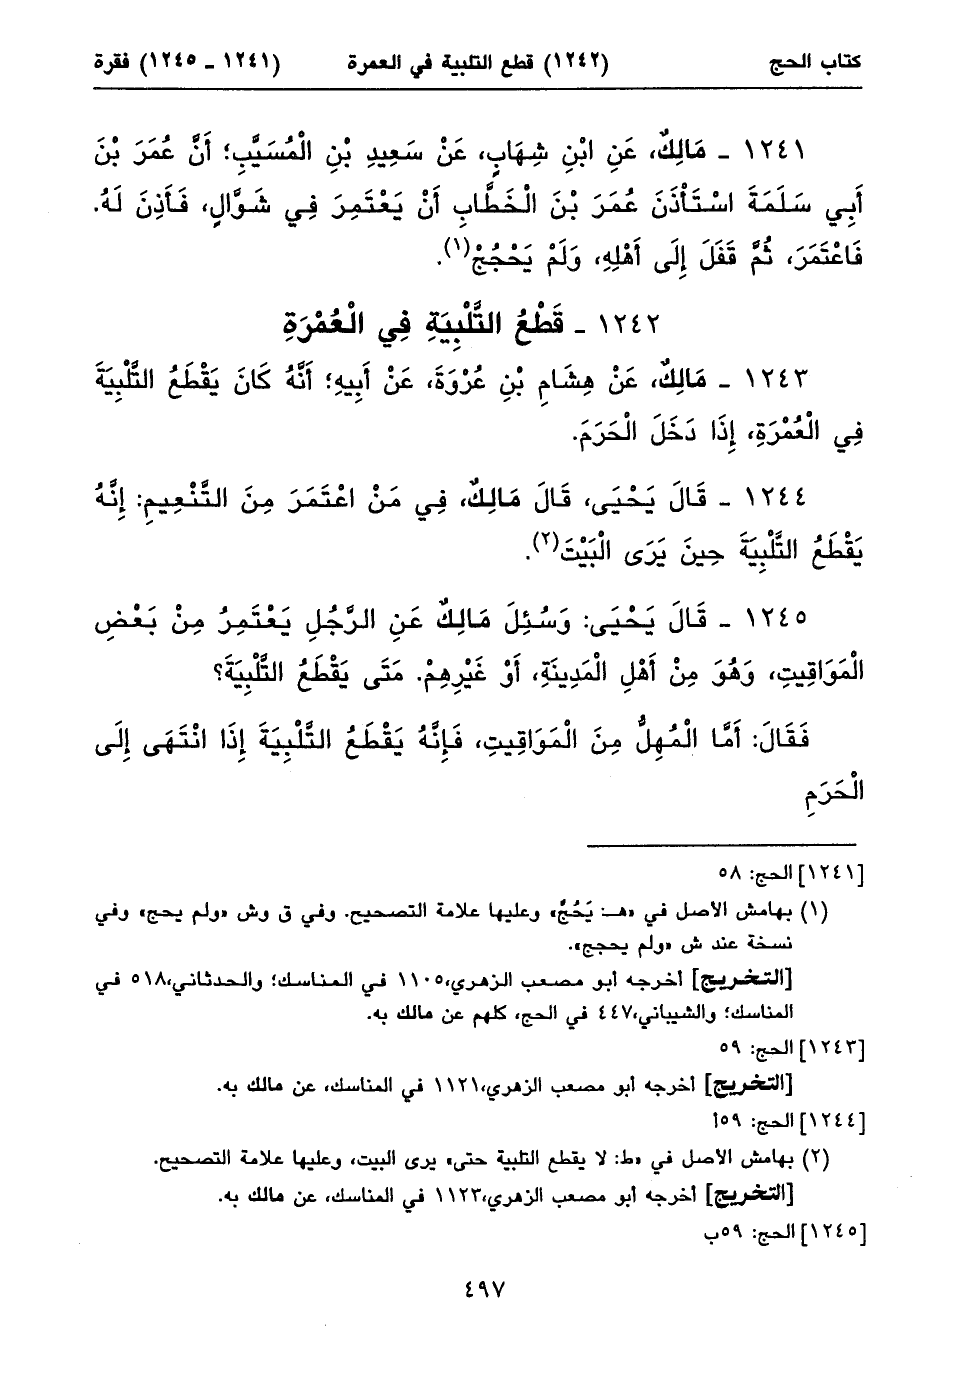 كتاب الحج (١٢٤٢) قطع التلبية في العمرة (١٢٤١ - ١٢٤٥) فقرة
١٢٤١ - مَالِكٌ، عَنِ ابْنِ شِهَابٍ، عَنْ سَعِيدِ بْنِ الْمُسَيَّبِ؛ أَنَّ عُمَرَ بْنَ
أَبِي سَلَمَةَ اسْتَأْذَنَ عُمَرَ بْنَ الْخَطَّابِ أَنْ يَعْتَمِرَ فِي شَوَّالٍ، فَأَذِنَ لَهُ.
فَاعْتَمَرَ، ثُمَّ قَفَلَ إِلَى أَهْلِهِ، وَلَمْ يَحْجُجْ(١).
١٢٤٢ - قَطْعُ التَّلْبِيَةِ فِي الْعُمْرَةِ
١٢٤٣ - مَالِكٌ، عَنْ هِشَامِ بْنِ عُرْوَةَ، عَنْ أَبِيهِ؛ أَنَّهُ كَانَ يَقْطَعُ التَّلْبِيَةَ
فِي الْعُمْرَةِ، إِذَا دَخَلَ الْحَرَمَ.
١٢٤٤ - قَالَ يَحْيَى، قَالَ مَالِكٌ، فِي مَنْ اعْتَمَرَ مِنَ التَّنْعِيمِ: إِنَّهُ
يَقْطَعُ التَّلْبِيَةَ حِينَ يَرَى الْبَيْتَ(٢).
١٢٤٥ - قَالَ يَحْيَى: وَسُئِلَ مَالِكٌ عَنِ الرَّجُلِ يَعْتَمِرُ مِنْ بَعْضِ
الْمَوَاقِيتِ، وَهُوَ مِنْ أَهْلِ الْمَدِينَةِ، أَوْ غَيْرِهِمْ. مَتَى يَقْطَعُ التَّلْبِيَةَ؟
فَقَالَ: أَمَّا الْمُهِلُّ مِنَ الْمَوَاقِيتِ، فَإِنَّهُ يَقْطَعُ التَّلْبِيَةَ إِذَا انْتَهَى إِلَى
الْحَرَمِ
[١٢٤١] الحج: ٥٨
(١) بهامش الأصل في «هـ: يَحُجَّ» وعليها علامة التصحيح. وفي ق وش «ولم يحج» وفي
نسخة عند ش «ولم يحجج».
[التخريج] أخرجه أبو مصعب الزهري،١١٠٥ في المناسك؛ والحدثاني،٥١٨ في
المناسك؛ والشيباني،٤٤٧ في الحج، كلهم عن مالك به.
[١٢٤٣] الحج: ٥٩
[التخريج] أخرجه أبو مصعب الزهري،١١٢١ في المناسك، عن مالك به.
[١٢٤٤] الحج: ٥٩أ
(٢) بهامش الأصل في «ط: لا يقطع التلبية حتى» يرى البيت، وعليها علامة التصحيح.
[التخريج] أخرجه أبو مصعب الزهري،١١٢٣ في المناسك، عن مالك به.
[١٢٤٥] الحج: ٥٩ب
٤٩٧